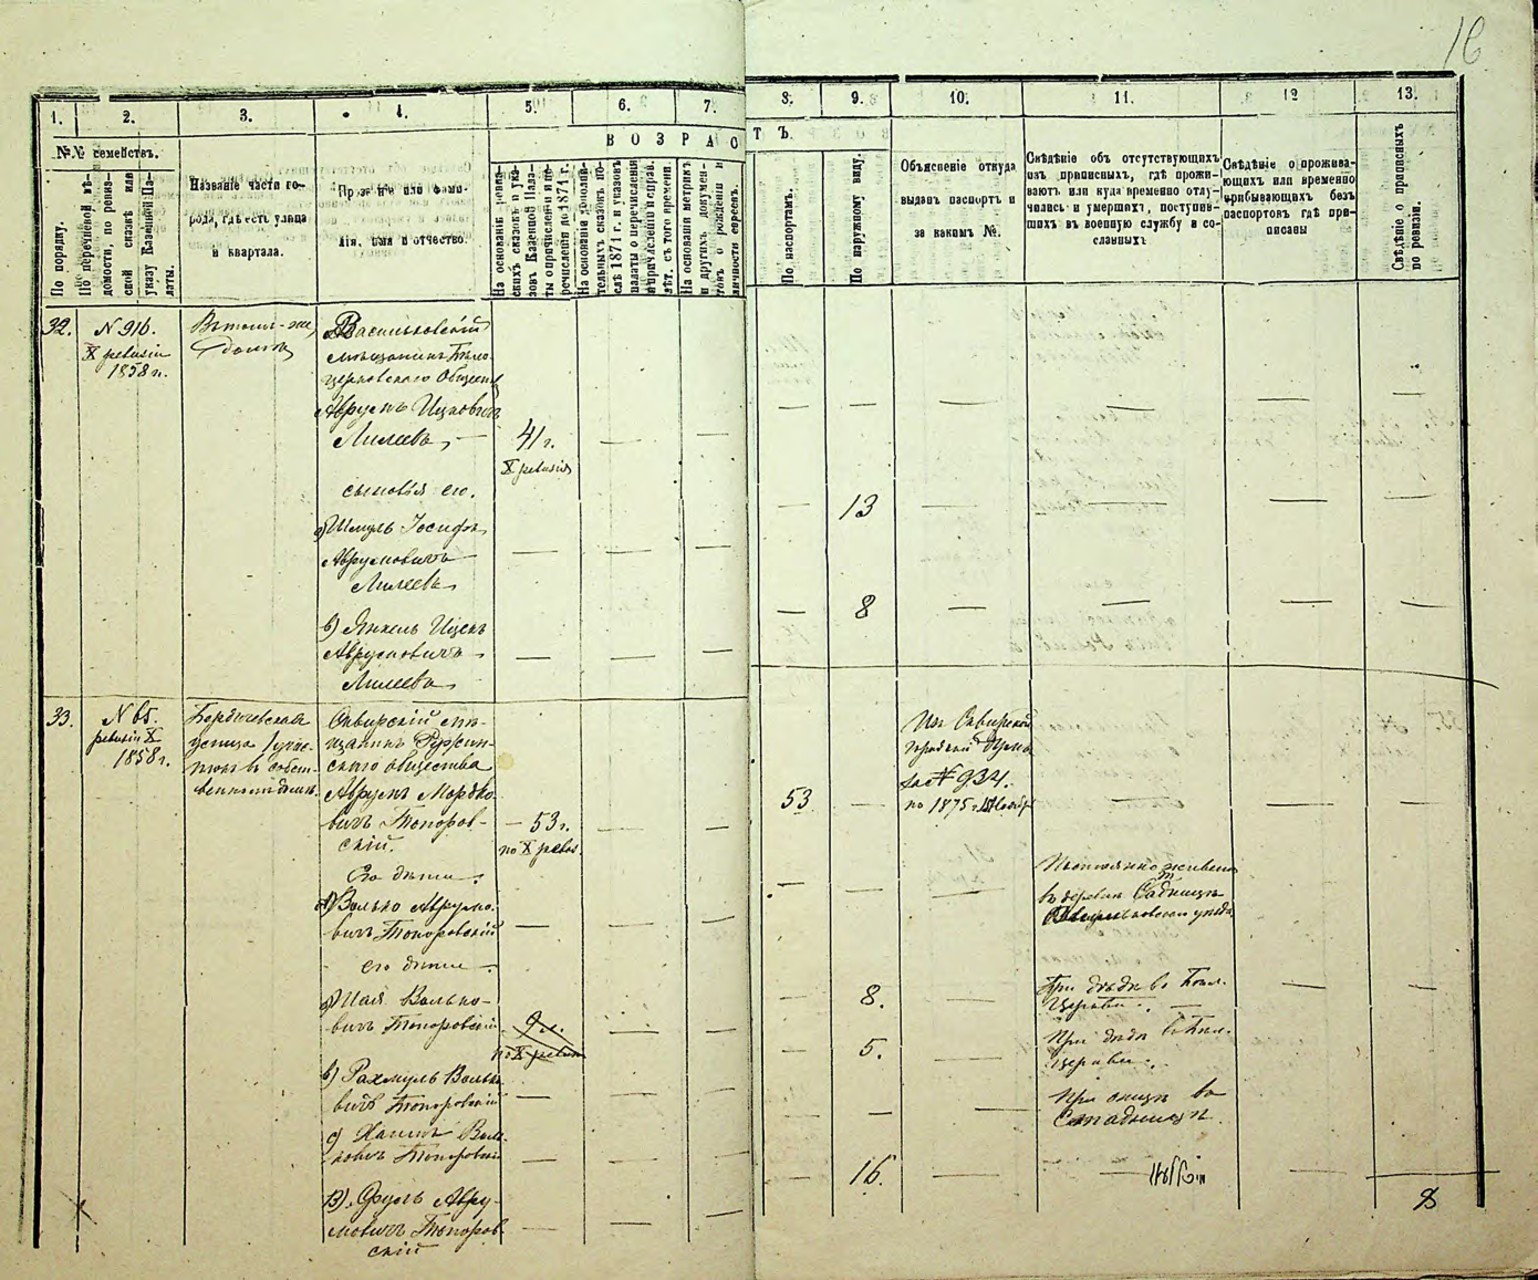 16
1. 2. 3. 4. 5. 6. 7. 8. 9. 10. 11. 12 13.
№№ семействъ.
В О З Р А С Т Ъ.
По порядку.
По перечневой вѣ-
домости, по ревиз-
ской сказкѣ или
указу Казенной Па-
латы.
Названіе части го-
рода, гдѣ есть улица
и квартала.
Прозваніе или фами-
лія, имя и отчество.
На основаніи ревиз-
скихъ сказокъ и ука-
зовъ Казенной Пала-
ты о причисленіи и пе-
речисленіи до 1871 г.
На основаніи дополни-
тельныхъ сказокъ по-
слѣ 1871 г. и указовъ
палаты о перечисленіи
и причисленіи и справ.
лѣт. съ того времени.
На основаніи метрикъ
и другихъ докумен-
товъ о рожденіи и
личности евреевъ.
По паспортамъ.
По наружному виду.
Объясненіе откуда
выданъ паспортъ и
за какимъ №.
Свѣдѣніе объ отсутствующихъ
изъ приписныхъ, гдѣ прожи-
ваютъ или куда временно отлу-
чились и умершихъ, поступив-
шихъ въ военную службу и со-
сланныхъ
Свѣдѣніе о прожива-
ющихъ или временно
прибывающихъ безъ
паспортовъ гдѣ при-
писаны
Свѣдѣніе о приписныхъ
по ревизіи.
32.
N 916.
X ревизіи
1858 г.
Васильковскій
мѣщанинъ Бѣло-
церковскаго Обществ
Аврумъ Ицковичъ
Лилеевъ
41 г.
X ревизія
сыновья его.
а) Шмуль Іосифъ
Аврумовичъ
Лилеевъ
13
в) Янкель Ицекъ
Аврумовичъ
Лилеевъ
8
33.
N 65.
ревизіи X
1858 г.
Бердичевская
улица
въ собст-
венномъ домѣ.
Сквирскій мѣ-
щанинъ Ружин-
скаго общества
Аврумъ Мордко-
вичъ Топоров-
скій.
53 г.
по X ревиз.
53
Изъ Сквирской
городской Думы
за № 934.
по 1875 г.
Его дѣти.
а) Волько Аврумо-
вичъ Топоровскій
Постоянно живетъ
въ деревнѣ
уѣзда
его дѣти
а) Шая Волько-
вичъ Топоровскій
9 л.
по X ревизіи
8.
При дѣдѣ въ Бѣл.
Церкви.
в) Рахмуль Вольк
вичъ Топоровскій
5.
При дѣдѣ въ Бѣл.
Церкви.
с) Хаимъ Воль-
ковичъ Топоровскій
При отцѣ въ
В). Сруль Авру-
мовичъ Топоров-
скій
16.
8